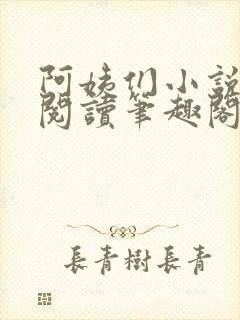 阿姨们小說
閱讀筆趣閣
長青樹長青